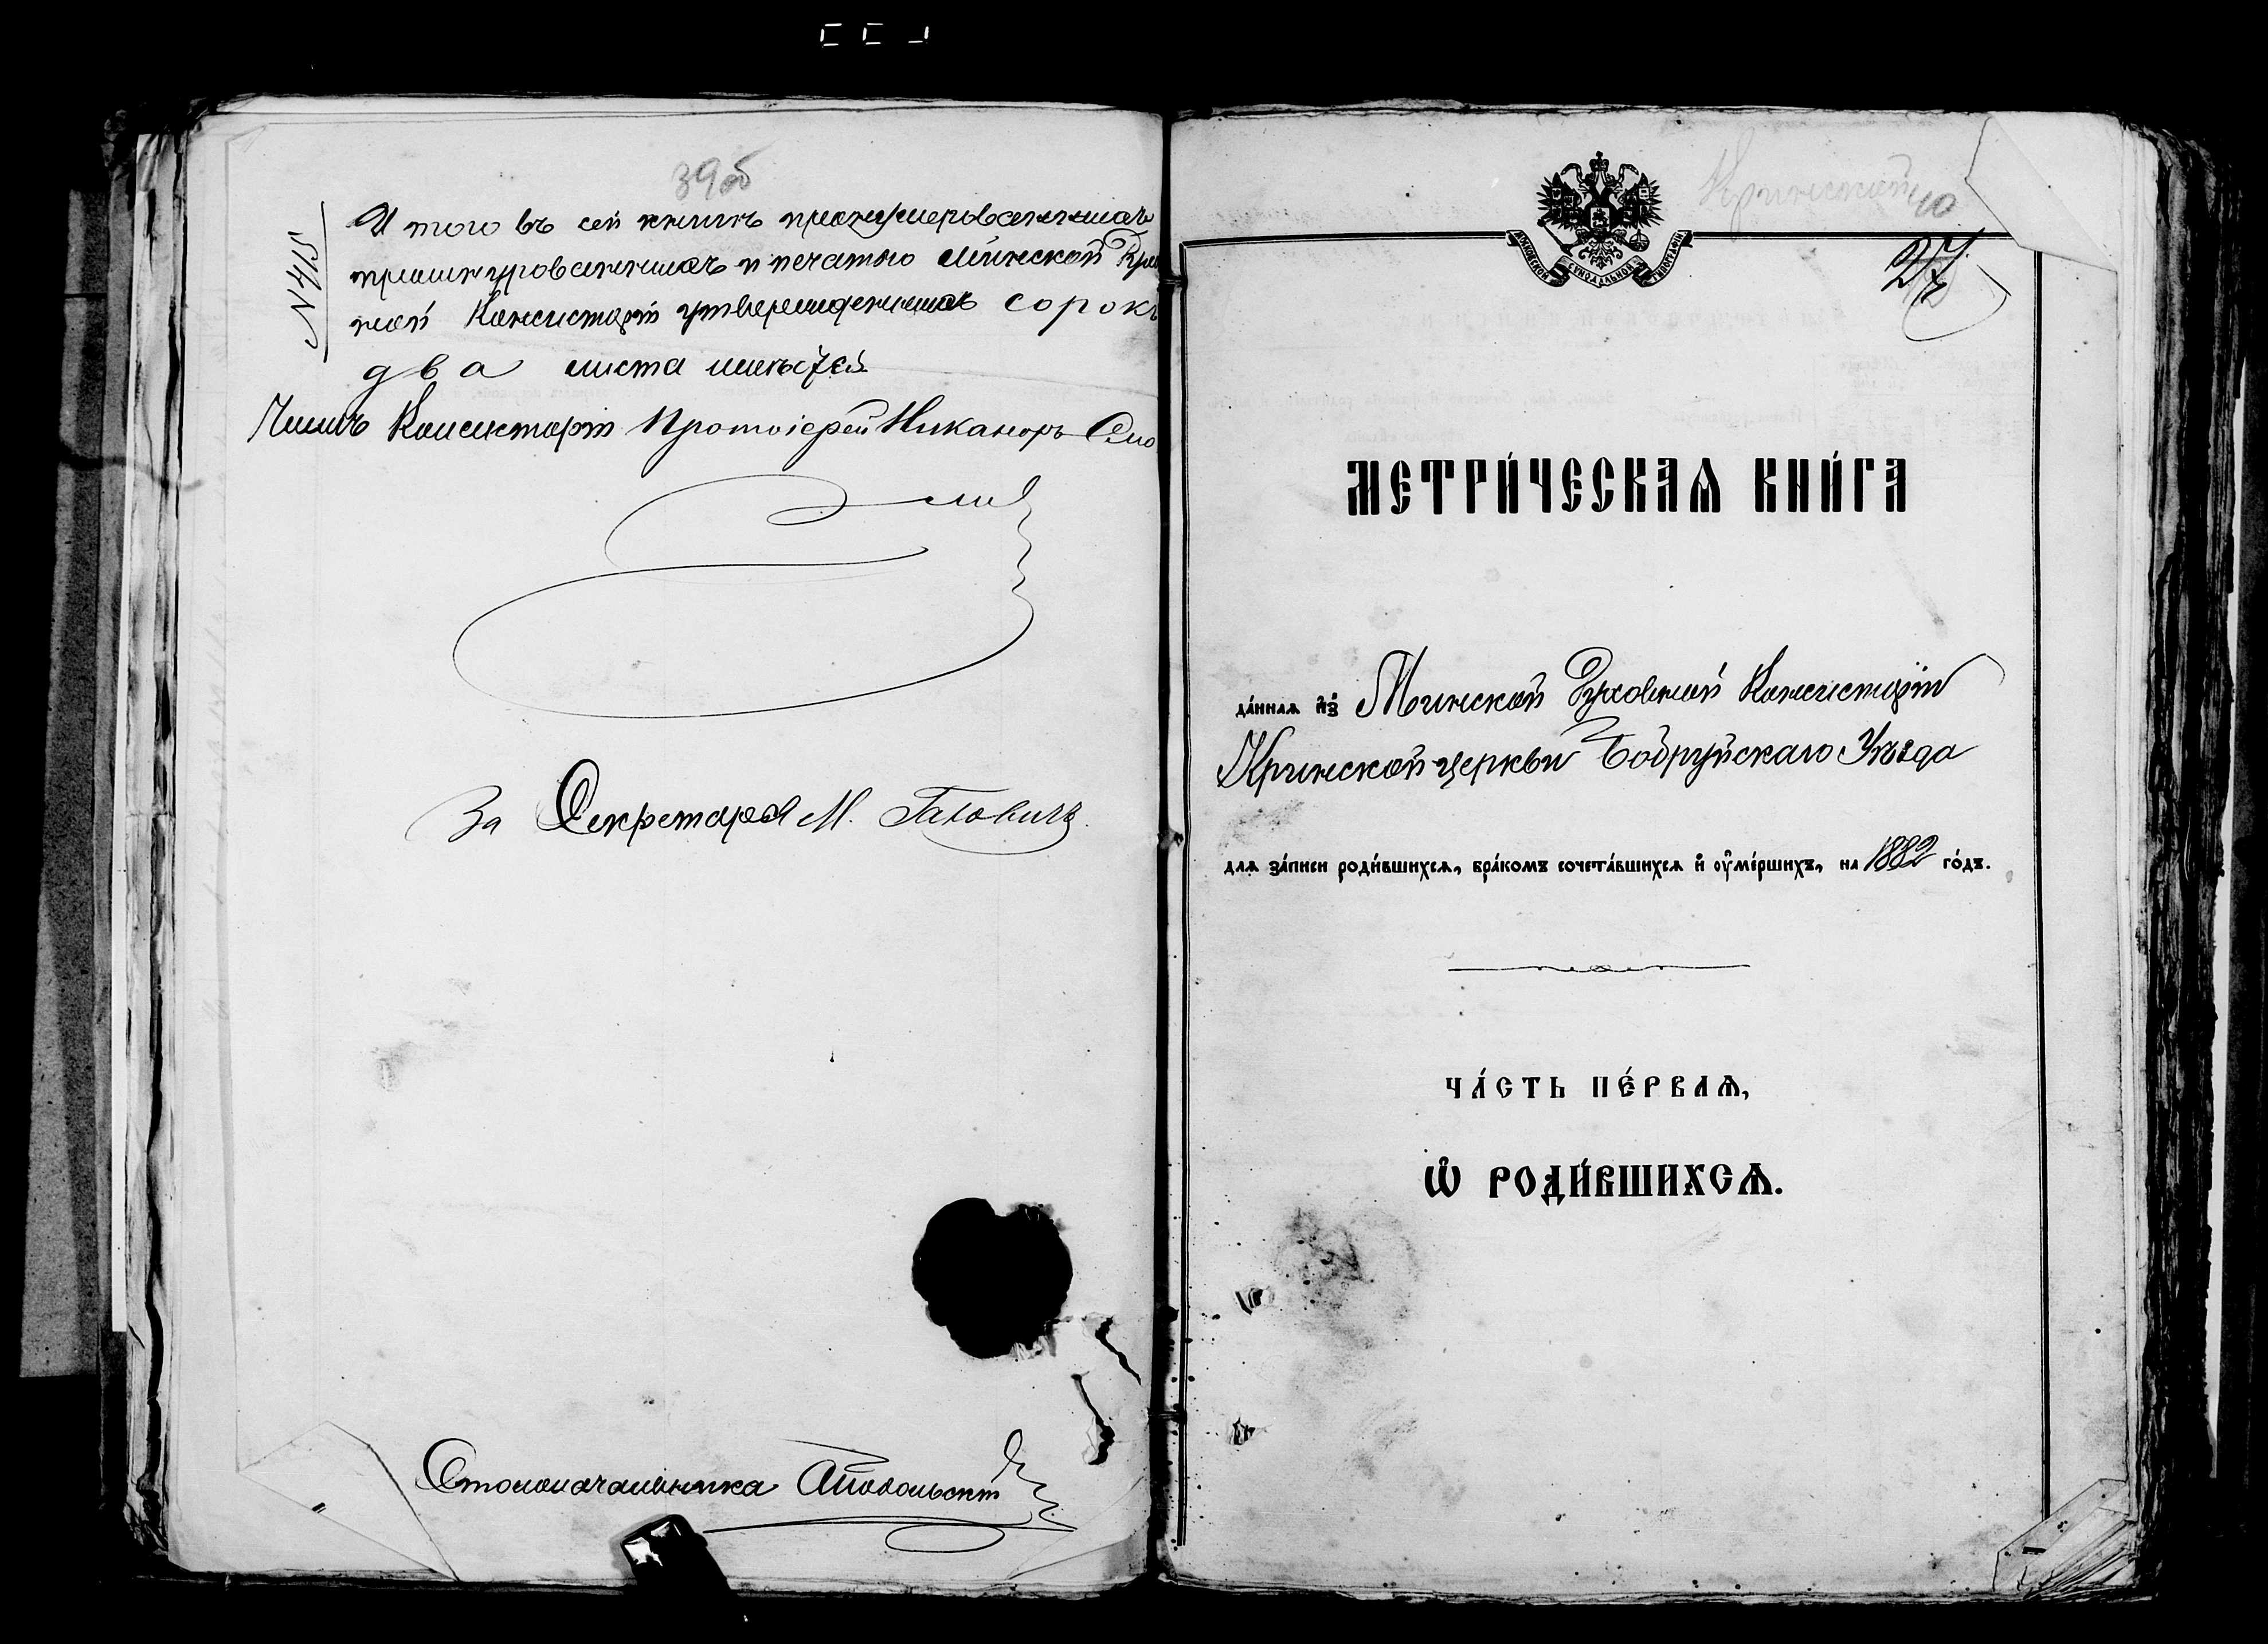 39об
№ 415
Итого въ сей книгѣ пронумерованныхъ
прошнурованныхъ и печатью Минской
ной Консисторіи утвержденныхъ сорокъ
два листа имѣется
Членъ Консисторіи Протоіерей Никаноръ Смо
личъ
За Секретаря М.
Столоначальника
Кринской 40
27
МОСКОВСКОЙ СѴНОДАЛЬНОЙ ТИПОГРАФІИ
МЕТРИ́ЧЕСКАѦ КНИ́ГА
да́ннаѧ и҆з̾ Минской Духовной Консисторіи
Кринской церкви Бобруйскаго Уѣзда
длѧ за́писи роди́вшихсѧ, бра́комъ сочета́вшихсѧ и҆ ᲂу҆ме́ршихъ, на 1882 го́дъ.
ЧА́СТЬ ПЕ́РВАѦ,
Ѡ҆ РОДИ́ВШИХСѦ.